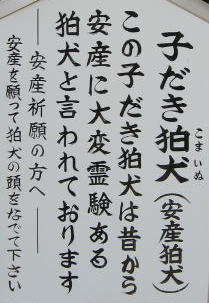 子だき狛犬(安産狛犬)
こまいぬ
この子だき狛犬は昔から
安産に大変霊験ある
狛犬と言われております
―安産祈願の方へ―
安産を願って狛犬の頭をなでて下さい